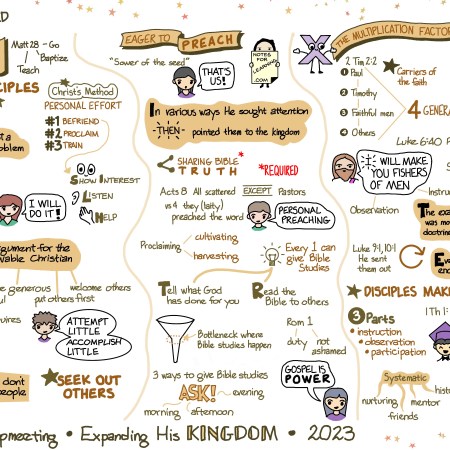 Matt 28 - Go
Baptize
Teach
Christ's Method
PERSONAL EFFORT
#1 BEFRIEND
#2 PROCLAIM
#3 TRAIN
SHOW INTEREST
LISTEN
HELP
I WILL
DO IT!
argument for the
Christian
generous
welcome others
put others first
ATTEMPT
LITTLE
ACCOMPLISH
LITTLE
don't
people
SEEK OUT
OTHERS
EAGER TO PREACH
"Sower of the seed"
THAT'S
US!
NOTES
FOR
LEARNING
.COM
In various ways He sought attention
-THEN- pointed them to the kingdom
SHARING BIBLE
TRUTH
*REQUIRED
Acts 8 All scattered EXCEPT Pastors
vs 4 they (laity)
preached the word
PERSONAL
PREACHING
Proclaiming
cultivating
harvesting
Every 1 can
give Bible
Studies
Tell what God
has done for you
Read the
Bible to others
Bottleneck where
Bible studies happen
Rom 1
duty not
ashamed
3 ways to give Bible studies
ASK!
evening
morning afternoon
GOSPEL IS
POWER
THE MULTIPLICATION FACTOR
2 Tim 2:2
1 Paul
2 Timothy
3 Faithful men
4 Others
Carriers of
the faith
4 GENERA
Luke 6:40
I WILL MAKE
YOU FISHERS
OF MEN
Observation
Instruc
The exa
was mo
doctrine
Luke 9:1, 10:1
He sent
them out
Eve
en
DISCIPLES MAK
3 Parts
• instruction
• observation
• participation
1 Th 1:
Systematic
nurturing
histor
mento
friends
pmeeting • Expanding His KINGDOM • 2023